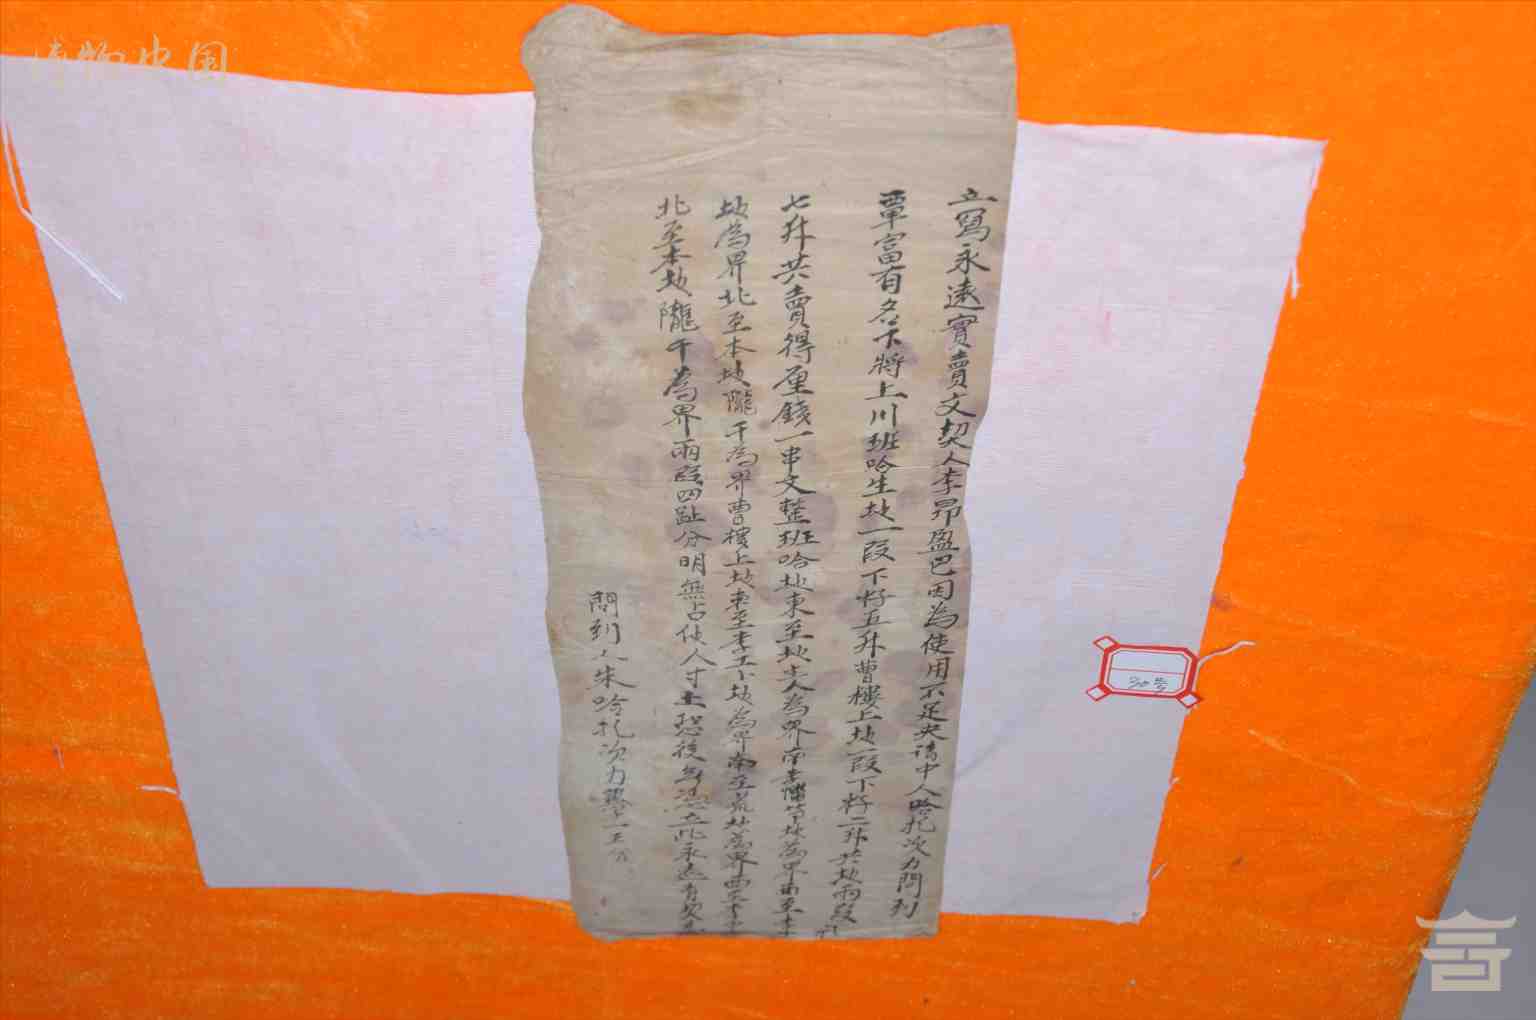 博物中国
立寫永遠實賣文契人李昂盈巴因為使用不足央請中人哈扎次力問到
覃富有名下將上川班哈生坡一段下籽五升曹樓上坡一段下籽二升共坡兩段
七升共賣得厘錢一串文整班哈坡東至坡主人為界南李
坡為界北至本坡隴干為界曹樓上坡東至李工卜坡為界南至荒坡為界西至李
北至本坡隴干為界兩段四趾分明無占使人寸土恐後無憑立此永遠
問到人朱哈扎次力